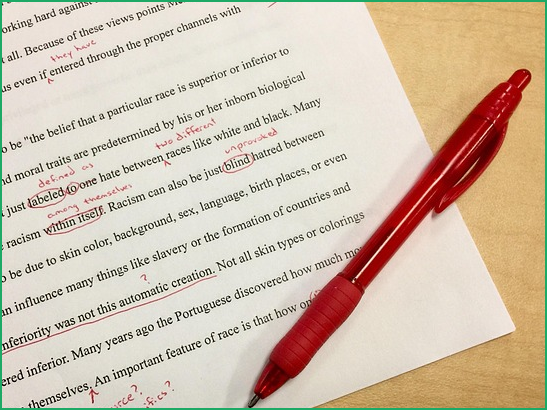 orking hard against
t all. Because of these views points
they have
us even if entered through the proper channels with
o be "the belief that a particular race is superior or inferior to
nd moral traits are predetermined by his or her inborn biological
two different
t just labeled to one hate between races like white and black. Many
defined as
unprovoked
racism within itself. Racism can also be just blind hatred between
among themselves
o be due to skin color, background, sex, language, birth places, or even
an influence many things like slavery or the formation of countries and
?
nferiority was not this automatic creation. Not all skin types or colorings
ered inferior. Many years ago the Portuguese discovered how much mo
themselves. An important feature of race is that how on
urce?
ifics?